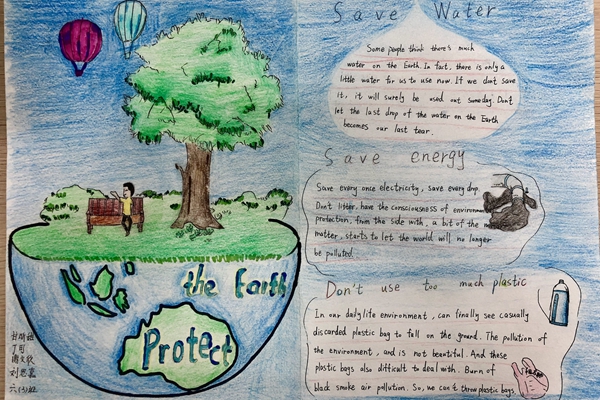 Save Water
Some people think there's much
water on the Earth. In fact, there is only a
little water for us to use now. If we don't save
it, it will surely be used out someday. Don't
let the last drop of the water on the Earth
becomes our last tear.
Save energy
Save every once electricity, save every drop.
Don't litter, have the consciousness of environment
protection, from the side with, a bit of the
matter, starts to let the world will no longer
be polluted.
Don't use too much plastic
In our daily life environment, can finally see casually
discarded plastic bag to fall on the ground. The pollution of
the environment, and is not beautiful. And those
plastic bags also difficult to deal with. Burn of
black smoke air pollution. So, we can't throw plastic bags
the Earth
Protect
丁可
刘思嘉
六(3)班